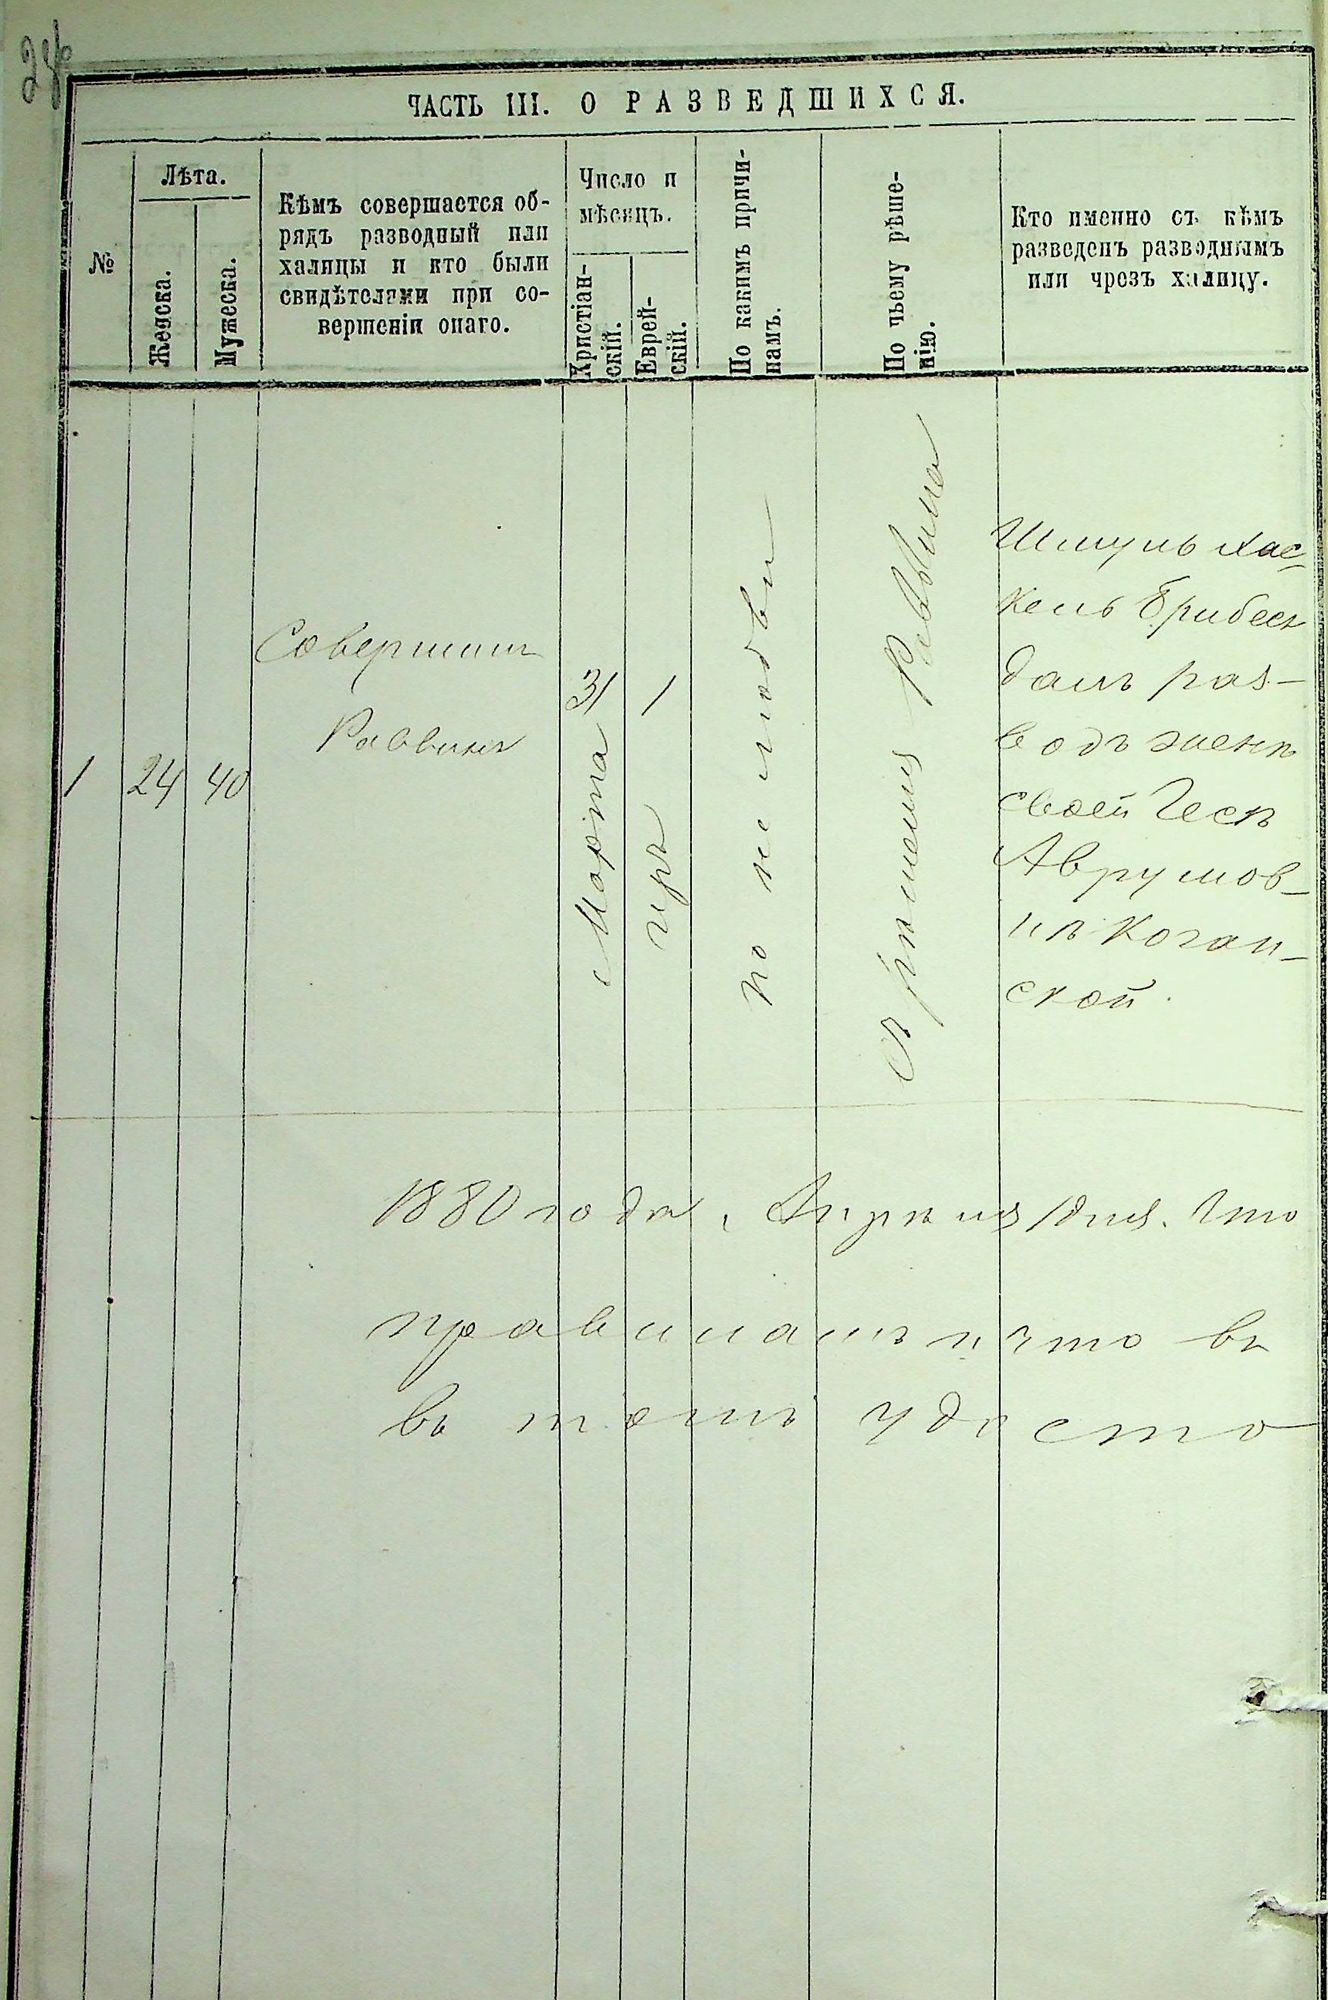 ЧАСТЬ III. О РАЗВЕДШИХСЯ.
№
Лѣта.
Женска.
Мужеска.
Кѣмъ совершается об-
рядъ разводный или
халицы и кто были
свидѣтелями при со-
вершеніи онаго.
Число и
мѣсяцъ.
Христіан-
скій.
Еврей-
скій.
По какимъ причи-
намъ.
По чьему рѣше-
нію.
Кто именно съ кѣмъ
разведенъ разводнымъ
или чрезъ халицу.
1
24
40
Совершилъ
Раввинъ
31
Марта
1
по нелюбви
Съ рѣшенія Раввина
Шмуль Хас-
кель
далъ раз-
водъ женѣ
своей Чесѣ
Аврумов-
нѣ Коган-
ской.
1880 года, Апрѣля 1 дня. Что
правиламъ и что въ
въ томъ удосто